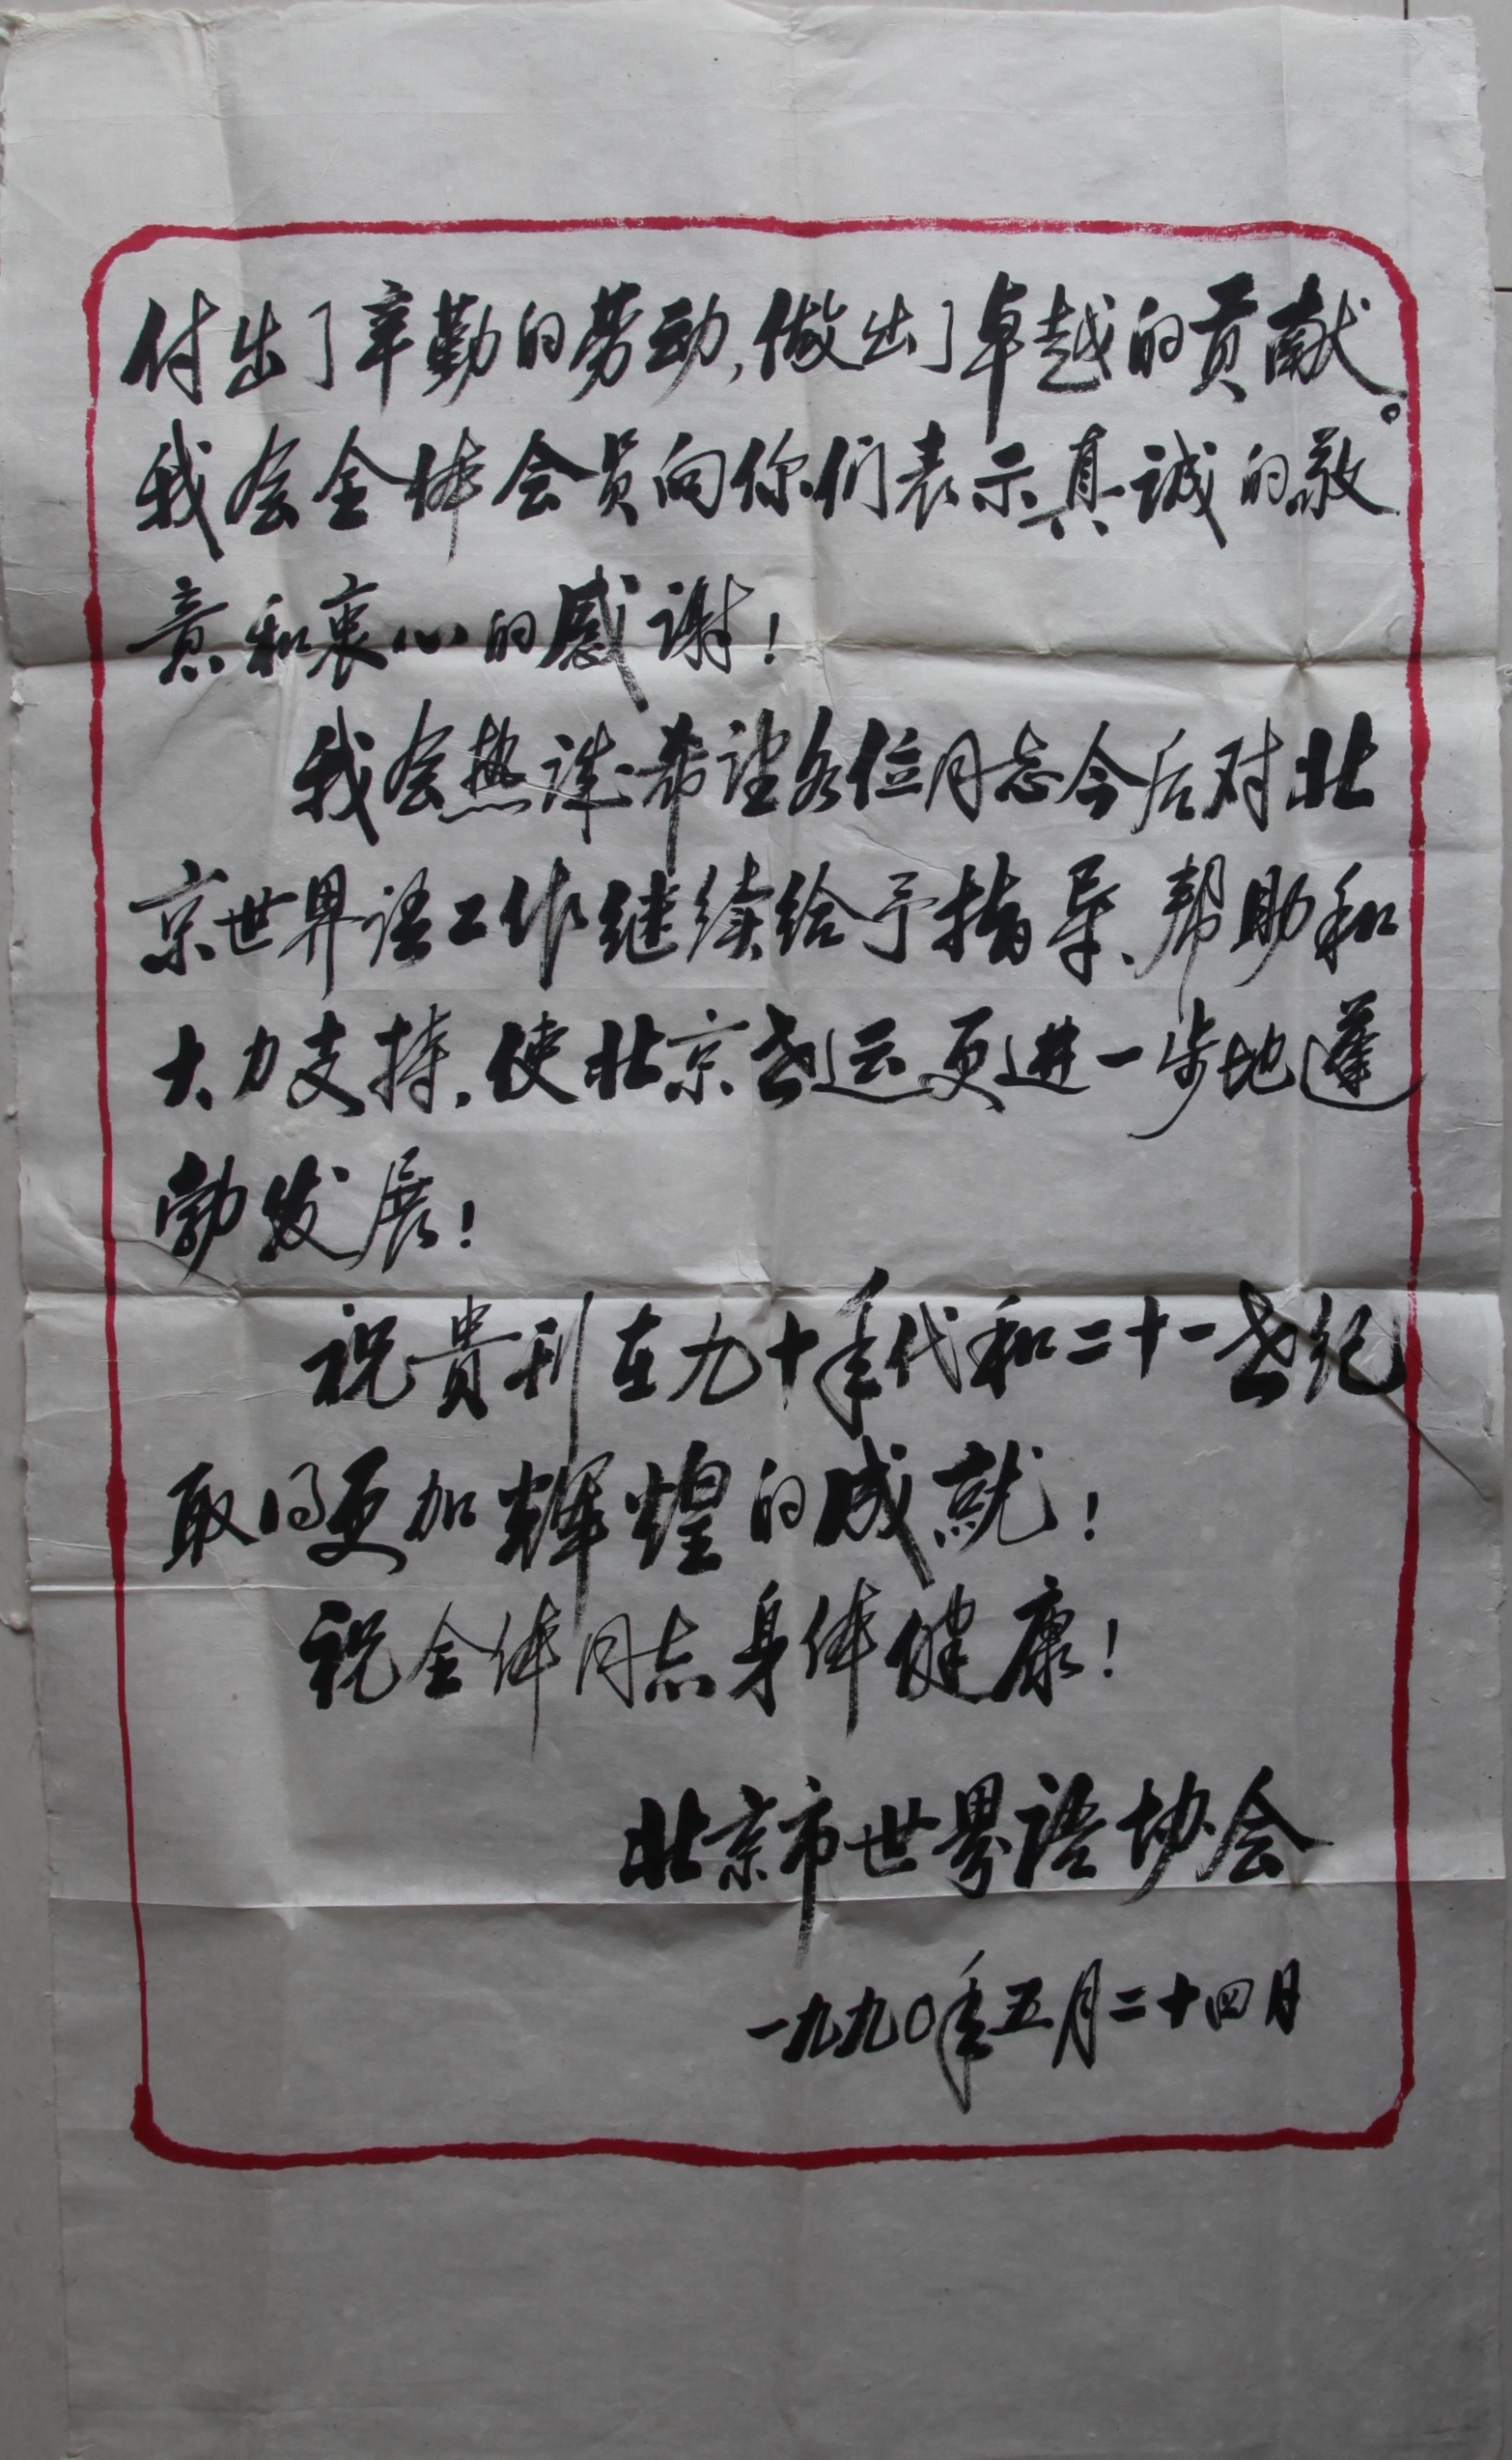 付出了辛勤的劳动,做出了卓越的贡献。
我会全体会员向你们表示真诚的敬
意和衷心的感谢!
我会热诚希望各位同志今后对北
京世界语工作继续给予指导、帮助和
大力支持,使北京世运更进一步地蓬
勃发展!
祝贵刊在九十年代和二十一世纪
取得更加辉煌的成就!
祝全体同志身体健康!
北京市世界语协会
一九九〇年五月二十四日